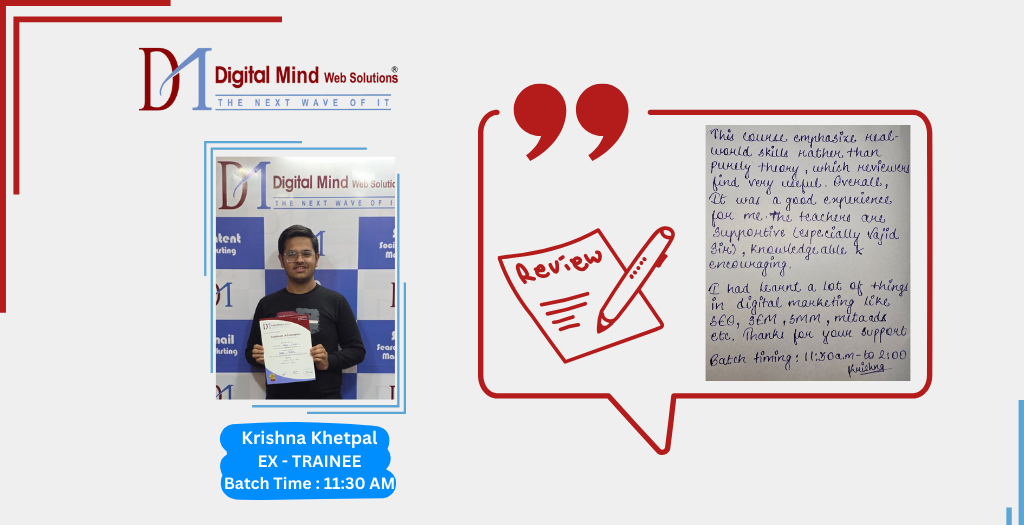 DM Digital Mind Web Solutions®
THE NEXT WAVE OF IT
DM Digital Mind Web Solutio
THE NEXT WAVE OF IT
ntent
rting
Soci
Ma
mail
rketing
Sear
Ma
Krishna Khetpal
EX - TRAINEE
Batch Time : 11:30 AM
Review
This course emphasize real-
world skills rather than
purely theory, which reviewers
find very useful. Overall,
It was a good experience
for me. The teachers are
Supportive (especially Vajid
Sir), knowledgeable &
encouraging.
I had learnt a lot of things
in digital marketing like
SEO, SEM, SMM, meta ads
etc. Thanks for your support
Batch timing : 11:30a.m - to 2:00
Krishna